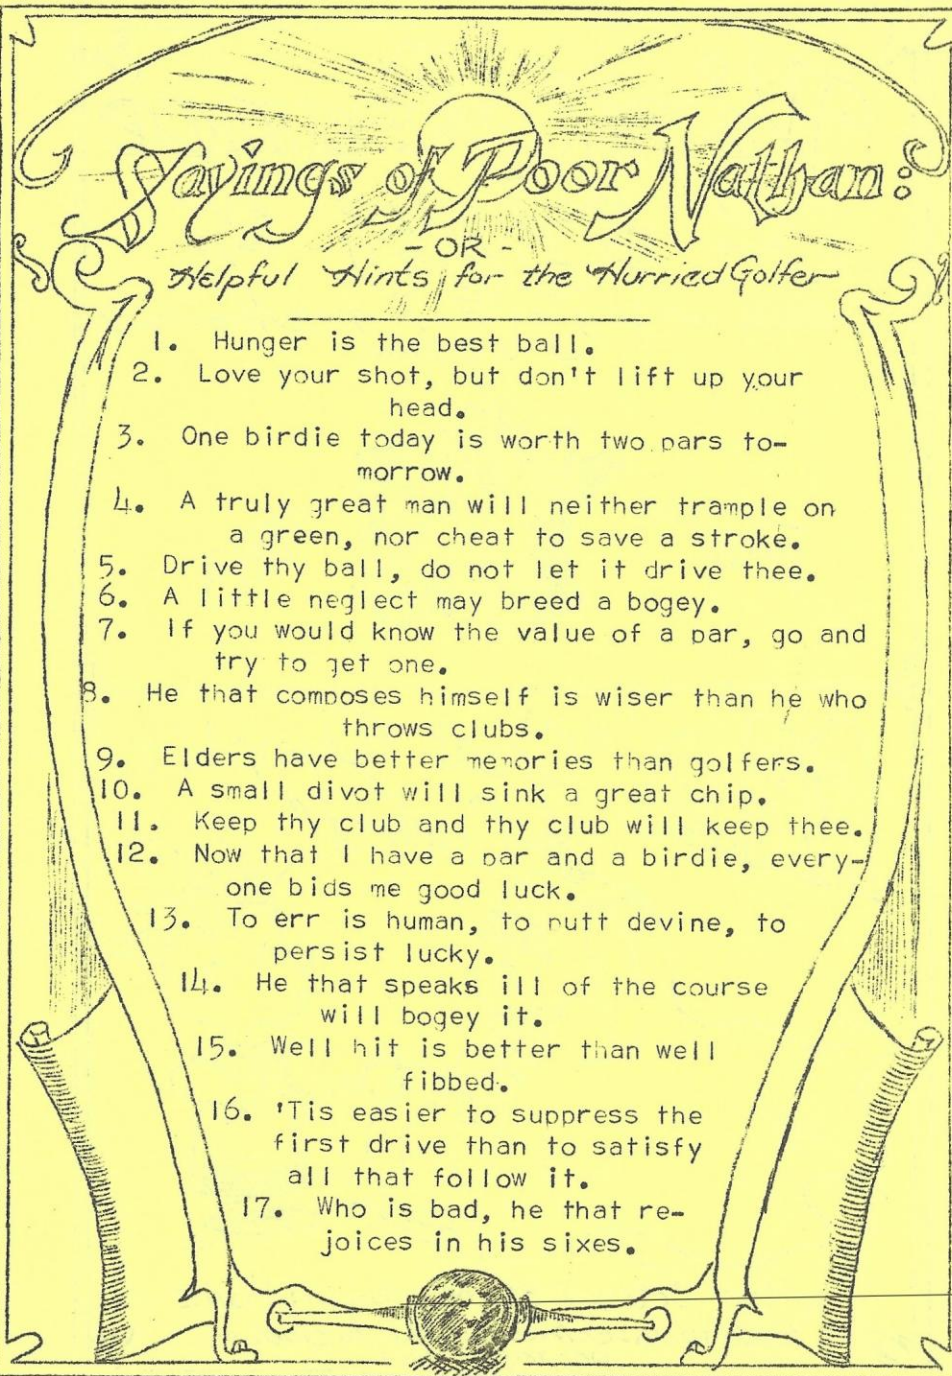 Sayings of Poor Nathan:
- OR -
Helpful Hints for the Hurried Golfer
1. Hunger is the best ball.
2. Love your shot, but don't lift up your
head.
3. One birdie today is worth two pars to-
morrow.
4. A truly great man will neither trample on
a green, nor cheat to save a stroke.
5. Drive thy ball, do not let it drive thee.
6. A little neglect may breed a bogey.
7. If you would know the value of a par, go and
try to get one.
8. He that composes himself is wiser than he who
throws clubs.
9. Elders have better memories than golfers.
10. A small divot will sink a great chip.
11. Keep thy club and thy club will keep thee.
12. Now that I have a par and a birdie, every-
one bids me good luck.
13. To err is human, to putt devine, to
persist lucky.
14. He that speaks ill of the course
will bogey it.
15. Well hit is better than well
fibbed.
16. 'Tis easier to suppress the
first drive than to satisfy
all that follow it.
17. Who is bad, he that re-
joices in his sixes.